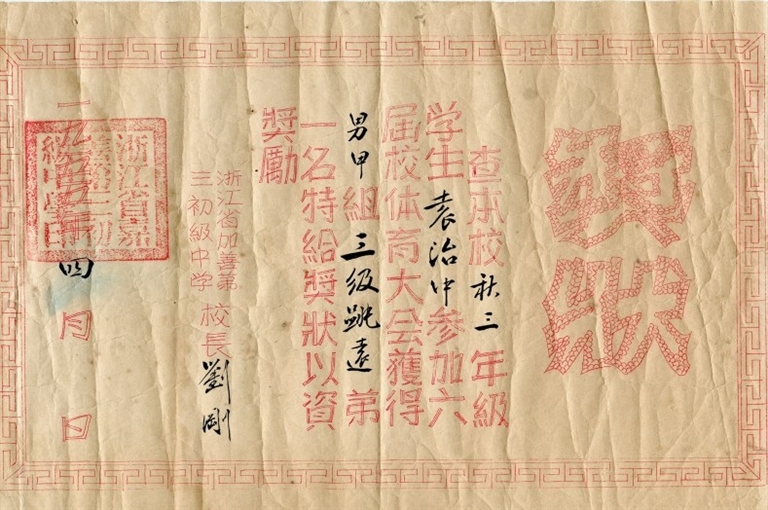 獎狀
查本校秋三年級
学生袁治中參加六
届校体育大会獲得
男甲組三級跳遠第
一名特給獎狀以資
獎勵
浙江省加善第
三初級中学
校長劉剛
一九五五
四月 日
浙江省嘉
善第三初
級中學印